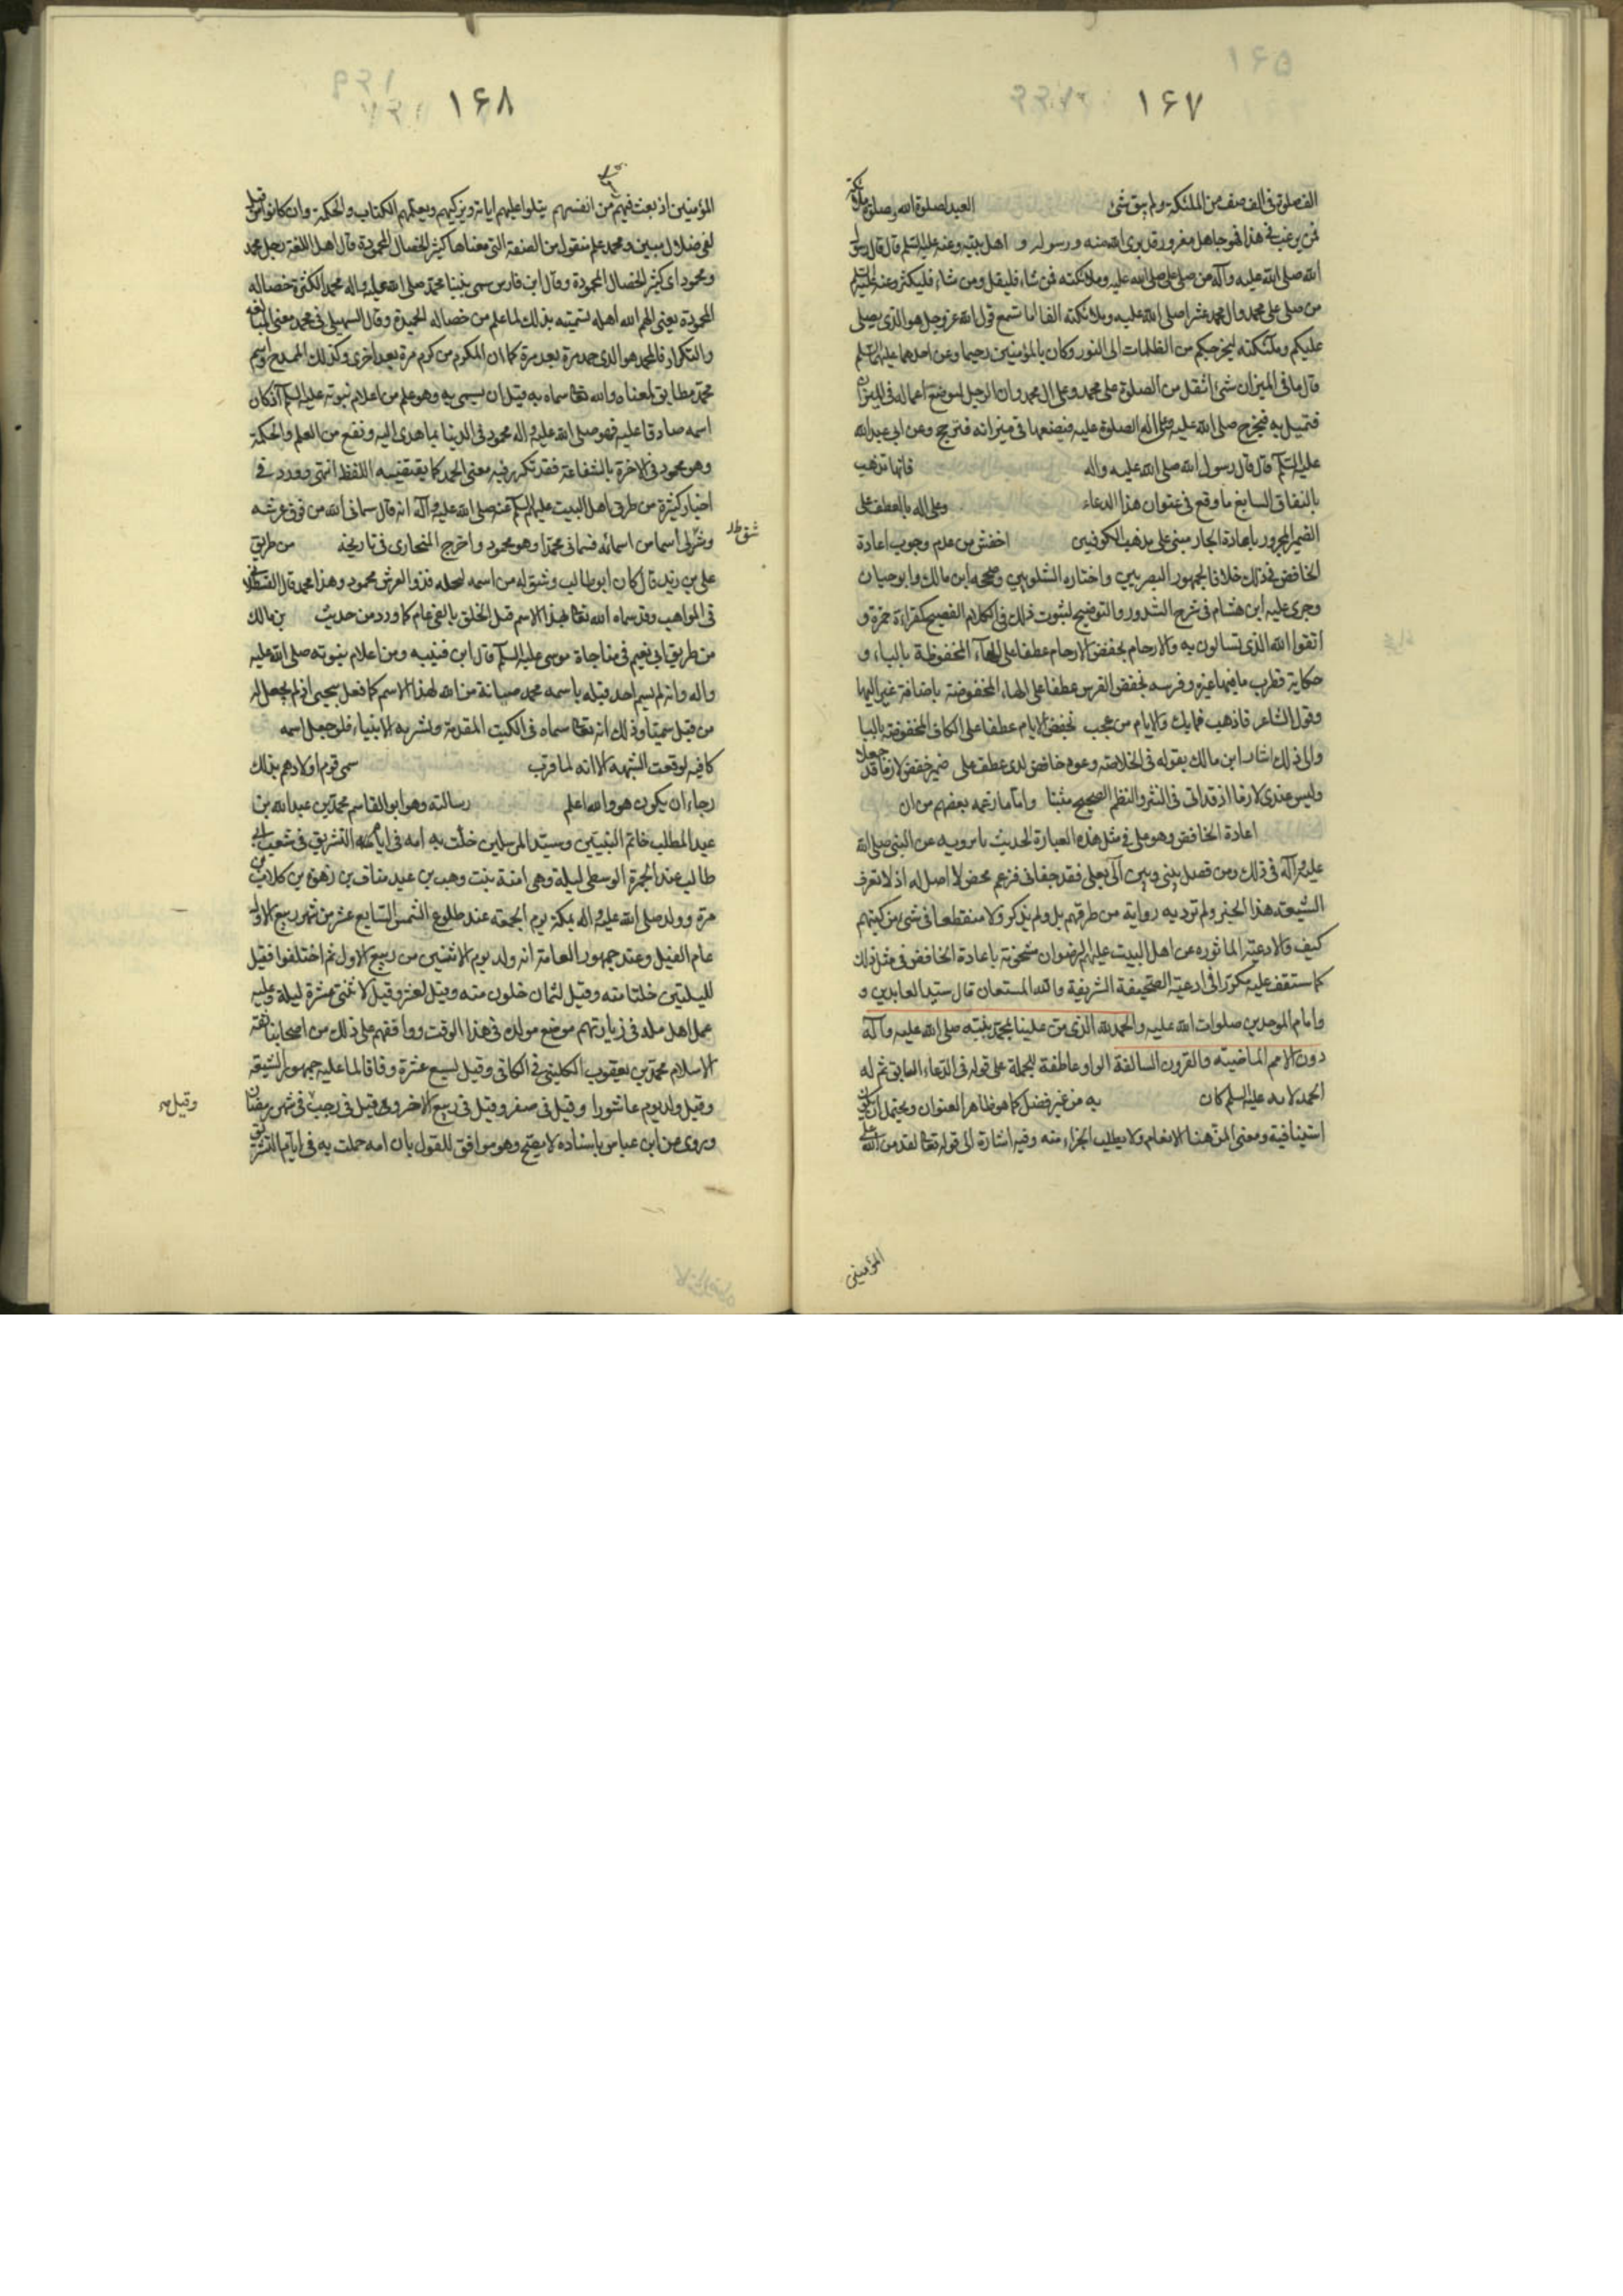 ١۶٧
الف صلوة فى الف صف من الملئكة ولم يبق شئ العبد لصلوة الله وصلوة ملائكته
فمن يرغب فى هذا فهو جاهل مغرور قد برئ الله منه ورسوله و اهل بيته وعنه عليه السلم قال قال رسول
الله صلى الله عليه وآله من صلى على صلى الله عليه وملائكته فمن شاء فليقل ومن شاء فليكثر وعنه عليه السلم
من صلى على محمد وال محمد عشرا صلى الله عليه وملائكته الفا اما تسمع قول الله عز وجل هو الذى يصلى
عليكم وملئكته ليخرجكم من الظلمات الى النور وكان بالمؤمنين رحيما وعن احدهما عليهما السلم
قال ما فى الميزان شئ اثقل من الصلوة على محمد وعلى ال محمد وان الرجل لموضع اعماله فى الميزان
فتميل به فيخرج صلى الله عليه وعلى اله الصلوة عليه فيضعها فى ميزانه فترجح وعن ابى عبد الله
عليه السلم قال قال رسول الله صلى الله عليه واله فانها تذهب
بالنفاق السابع ما وقع فى عنوان هذا الدعاء وعلى اله بالعطف على
الضمير المجرور باعادة الجار مبنى على مذهب الكوفيين اخفش من عدم وجوب اعادة
الخافض فى ذلك خلافا لجمهور البصريين واختاره الشلوبين وصححه ابن مالك وابو حيان
وجرى عليه ابن هشام فى شرح الشذور والتوضيح لثبوت ذلك فى الكلام الفصيح كقراءة حمزة و
اتقوا الله الذى تسالون به والارحام بخفض الارحام عطفا على الهاء المخفوظة بالباء و
حكاية قطرب ما فيها غيره وفرسه بخفض الفرس عطفا على الهاء المخفوضة باضافة غير اليها
وقول الشاعر فاذهب فمابك والايام من عجب بخفض الايام عطفا على الكاف المخفوضة بالبا
والى ذلك اشار ابن مالك بقوله فى الخلاصة وعود خافض لدى عطف على ضمير خفض لازما قد جعلا
وليس عندى لازما اذ قد اتى فى النثر والنظم الصحيح مثبتا واما ما زعمه بعضهم من ان
اعادة الخافض وهو على فى مثل هذه العبارة لحديث يروونه عن النبى صلى الله
عليه وآله فى ذلك ومن فصل بينى وبين آلى بعلى فقد جفانى فزعم محض لا اصل له اذ لا تعرف
الشيعة هذا الخبر ولم ترد به رواية من طرقهم بل ولم يذكر ولا منقطعا فى شئ من كتبهم
كيف والادعية الماثوره عن اهل البيت عليهم الرضوان مشحونة باعادة الخافض فى مثل ذلك
كما ستقف عليه مكررا فى ادعية الصحيفة الشريفة والله المستعان قال سيد العابدين و
وامام الموحدين صلوات الله عليه والحمد لله الذى من علينا بمحمد نبيه صلى الله عليه وآله
دون الامم الماضية والقرون السالفة الواو عاطفة للجملة على قوله فى الدعاء السابق ثم له
الحمد لانه عليه السلم كان به من غير فصل كما هو ظاهر العنوان ويحتمل ان تكون
استينافية ومعنى المن هنا الانعام ولا يطلب الجزاء منه وفيه اشارة الى قوله تعالى لقد من الله على
المؤمنين
١۶٨
المؤمنين اذ بعث فيهم من انفسهم يتلوا عليهم اياته ويزكيهم ويعلمهم الكتاب والحكمة وان كانوا من قبل
لفى ضلال مبين ومحمد علم منقول من الصفة التى معناها كثير الخصال المحمودة قال اهل اللغة رجل محمد
ومحمود اى كثير الخصال المحمودة وقال ابن فارس سمى نبينا محمد صلى الله عليه واله محمدا لكثرة خصاله
المحمودة يعنى الهم الله اهله لتسميته بذلك لما علم من خصاله الحميدة وقال السهيلى فى محمد معنى المبالغة
والتكرار فالمحمد هو الذى حمد مرة بعد مرة كما ان المكرم من كرم مرة بعد اخرى وكذلك الممدح واسم
محمد مطابق لمعناه والله تعالى سماه به قبل ان يسمى به وهو علم من اعلام نبوته عليه السلم اذ كان
اسمه صادقا عليه فهو صلى الله عليه واله محمود فى الدينا بما هدى اليه ونفع من العلم والحكمة
وهو محمود فى الاخرة بالشفاعة فقد تكرر فيه معنى الحمد كما يقتضيه اللفظ انتهى وورد فى
اخبار كثيرة من طرق اهل البيت عليهم السلم عنه صلى الله عليه وآله انه قال سمانى الله من فوق عرشه
وشق لى اسما من اسمائه فسمانى محمدا وهو محمود واخرج البخارى فى تاريخه من طريق
على بن زيد قال كان ابو طالب وشق له من اسمه ليجله فذو العرش محمود وهذا محمد قال القسطلانى
فى المواهب وقد سماه الله تعالى بهذا الاسم قبل الخلق بالفى عام كما ورد من حديث بن مالك
من طريق ابى نعيم فى مناجاة موسى عليه السلم قال ابن قتيبه ومن اعلام نبوته صلى الله عليه
واله وانه لم يسم احد قبله باسمه محمد صيانة من الله لهذا الاسم كما فعل بيحيى اذ لم يجعل له
من قبل سميا وذلك انه تعالى سماه فى الكتب المقدمة وبشر به الانبياء فلو جعل اسمه
كافيه لوقعت الشبهة الا انه لما قرب سمى قوم اولادهم بذلك
رجاء ان يكون هو والله اعلم رسالته وهو ابو القاسم محمد بن عبد الله بن
عبد المطلب خاتم النبيين وسيد المرسلين حملت به امه فى ايام التشريق فى شعب ابى
طالب عند الجمرة الوسطى ليلة وهى امنة بنت وهب بن عبد مناف بن زهرة بن كلاب بن
مرة وولد صلى الله عليه واله بمكة يوم الجمعة عند طلوع الشمس السابع عشر من شهر ربيع الاول
عام الفيل وعند جمهور العامة انه ولد يوم الاثنين من ربيع الاول ثم اختلفوا فقيل
لليلتين خلتا منه وقيل لثمان خلون منه وقيل لعشر وقيل لاثنتى عشرة ليلة وعليه
عمل اهل مكة فى زيارتهم موضع مولده فى هذا الوقت ووافقهم على ذلك من اصحابنا ثقة
الاسلام محمد بن يعقوب الكلينى فى الكافى وقيل لسبع عشرة وفاقا لما عليه جمهور الشيعة
وقيل ولد يوم عاشورا وقيل فى صفر وقيل فى ربيع الاخر وقيل فى رجب فى شهر رمضان
وروى عن ابن عباس باسناده لا يصح وهو موافق للقول بان امه حملت به فى ايام التشريق